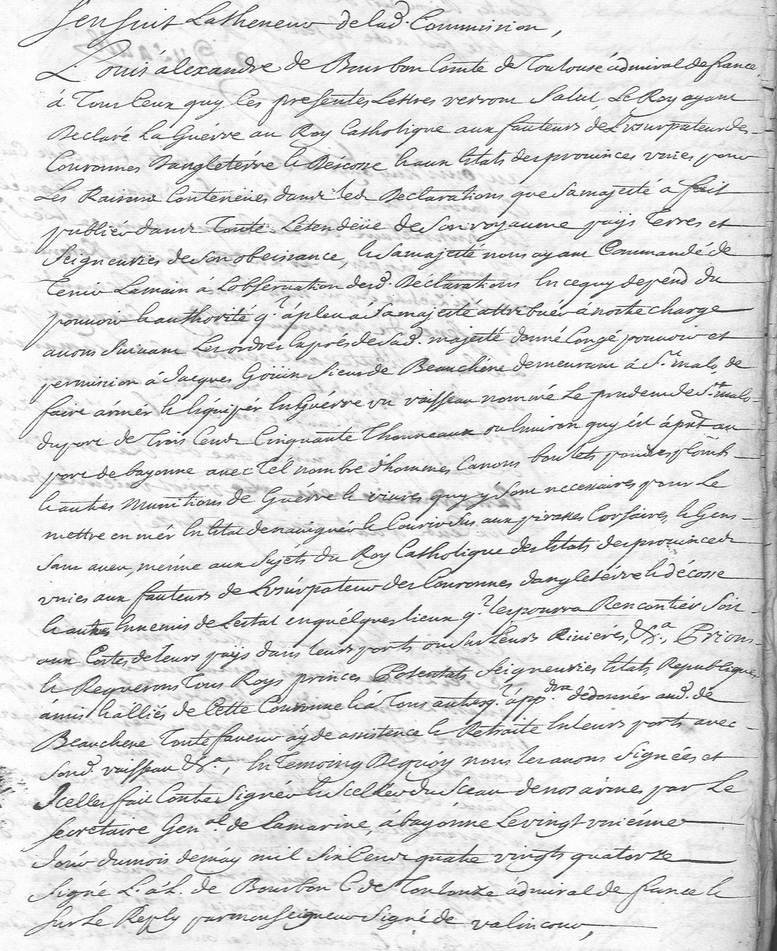 Sensuit Latheneur de lad. Commission,
Louis alexandre de Bourbon Comte de Toulouse admiral de france,
à Tous Ceux quy Ces presentes Lettres verront Salut, Le Roy ayant
Declaré La Guérre au Roy Catholique aux fauteurs de Lusurpateur des
Couronnes dangleterre & Décosse & aux Etats des provinces unies pour
Les Raisons Contenües dans les d. Declarations que Sa majesté à fait
publiér dans Toute Letendüe de Son royaume pays Terres et
Seigneuries de Son obeissance, & Sa majesté nous ayant Commandé de
Tenir Lamain à Lobservation desd. Declarations En ce quy depend du
pouvoir & authorité q.l à pleu à Sa majesté attribuér à nostre charge
avons Suivant Les ordres Exprés de Sad. majesté donné Congé pouvoir et
permission à Jacques Goüin Sieur de Beauchêne demeurant à S.t malo, de
faire armer & Equipér En Guérre un vaisseau nommé Le prudent de S.t malo
du port de Trois Cens Cinquante Thonneaux ou Environ quy est à p̃nt au
port de bayonne avec Tel nombre d'hommes Canons boulets poudres plomb
& autres munitions de Guérre & vivres quy y Sont necessaires pour Le
mettre en mér En Etat de naviguér & Courir Sus aux pirattes Corsaires, & Gens
Sans aveu, même aux Sujets du Roy Catholique des Etats des provinces
unies aux fauteurs de Lusurpateur des Couronnes dangletérre & décosse
& autres Ennemis de Lestat en quelques lieux q.l les pourra Rencontrér Soit
aux Costes de Leurs pays dans Leurs ports ou Sur Leurs Rivieres, &c.a Prions
& Requerons Tous Roys princes Potentats Seigneuries Etats Republiques
amis & alliés de Cette Couronne & à Tous autres q.l app.dra de donnér aud. de
Beauchêne Toute faveur ayde assistence & Retraite En Leurs ports avec
Sond. vaisseau &c.a, En Temoing De quoy nous les avons Signées et
Icelles fait Contre Signér & Scellér du Sceau de nos armes par Le
Secretaire Gen.al de Lamarine, à bayonne Levingt unieme
Jour du mois de may mil Six Cens quatre vingts quatorze
Signé L. a L. de Bourbon C. de Toulouze admiral de france &
Sur Le Reply par monseigneur Signé de valincour,